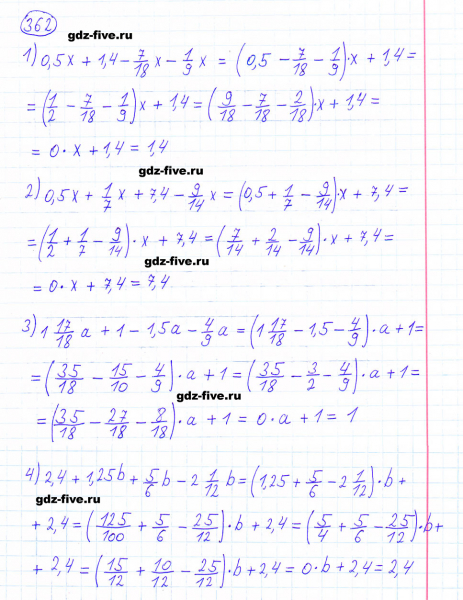 362
gdz-five.ru
1) 0,5x + 1,4 - 7/18 x - 1/9 x = (0,5 - 7/18 - 1/9)·x + 1,4 =
= (1/2 - 7/18 - 1/9)x + 1,4 = (9/18 - 7/18 - 2/18)·x + 1,4 =
= 0·x + 1,4 = 1,4
gdz-five.ru
2) 0,5x + 1/7 x + 7,4 - 9/14 x = (0,5 + 1/7 - 9/14)·x + 7,4 =
= (1/2 + 1/7 - 9/14)·x + 7,4 = (7/14 + 2/14 - 9/14)·x + 7,4 =
gdz-five.ru
= 0·x + 7,4 = 7,4
3) 1 17/18 a + 1 - 1,5a - 4/9 a = (1 17/18 - 1,5 - 4/9)·a + 1 =
= (35/18 - 15/10 - 4/9)·a + 1 = (35/18 - 3/2 - 4/9)·a + 1 =
gdz-five.ru
= (35/18 - 27/18 - 8/18)·a + 1 = 0·a + 1 = 1
4) 2,4 + 1,25b + 5/6 b - 2 1/12 b = (1,25 + 5/6 - 2 1/12)·b +
gdz-five.ru
+ 2,4 = (125/100 + 5/6 - 25/12)·b + 2,4 = (5/4 + 5/6 - 25/12)·b +
+ 2,4 = (15/12 + 10/12 - 25/12)·b + 2,4 = 0·b + 2,4 = 2,4